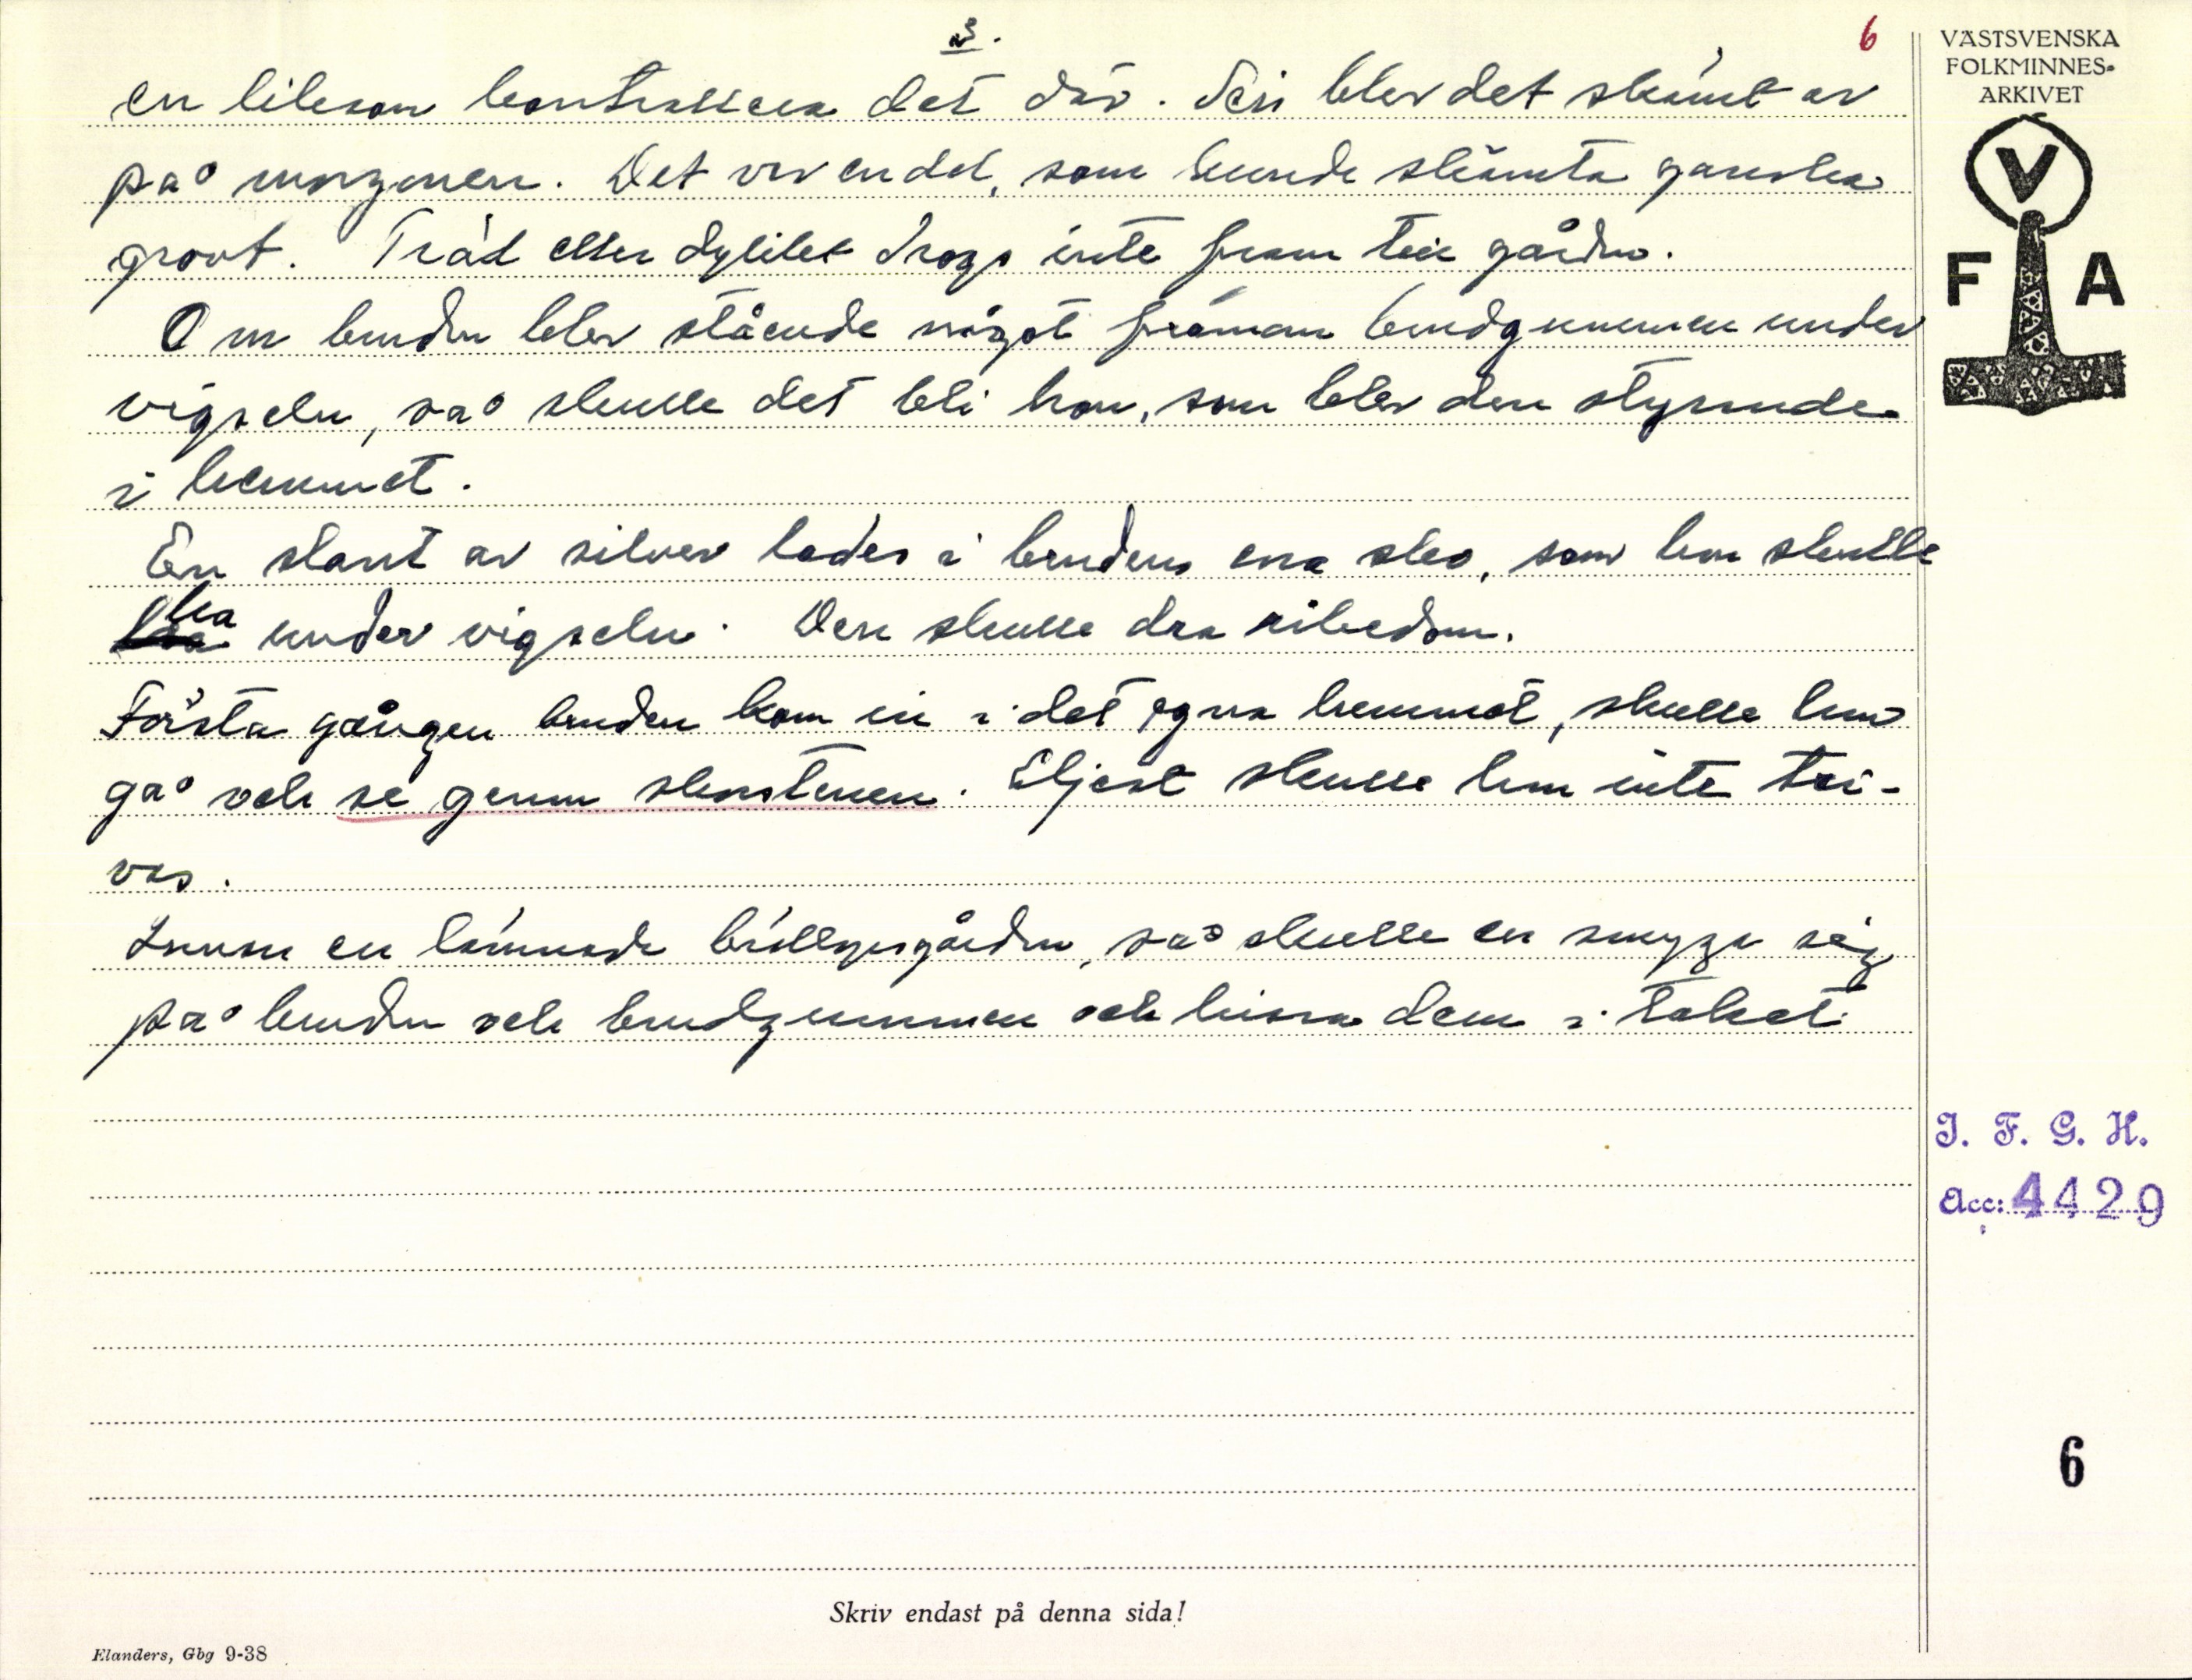 3.
6
en liksom kontrollera det där. Sen blev det skämt av
på morgonen. Det var en del, som kunde skämta ganska
grovt. Träd eller dylikt drogs inte fram till gården.
Om bruden blev stående något framom brudgummen under
vigseln, så skulle det bli hon, som blev den styrande
i hemmet.
En slant av silver lades i brudens ena sko, som hon skulle
ha under vigseln. Den skulle dra rikedom.
Första gången bruden kom in i det egna hemmet, skulle hon
gå och se genom skorstenen. Eljest skulle hon inte tri-
vas.
Innan en lämnade bröllopsgården, så skulle en smyga sig
på bruden och brudgummen och hissa dem i taket.
VÄSTSVENSKA
FOLKMINNES-
ARKIVET
V
F A
I. F. G. H.
Acc: 4429
6
Skriv endast på denna sida!
Elanders, Gbg 9-38